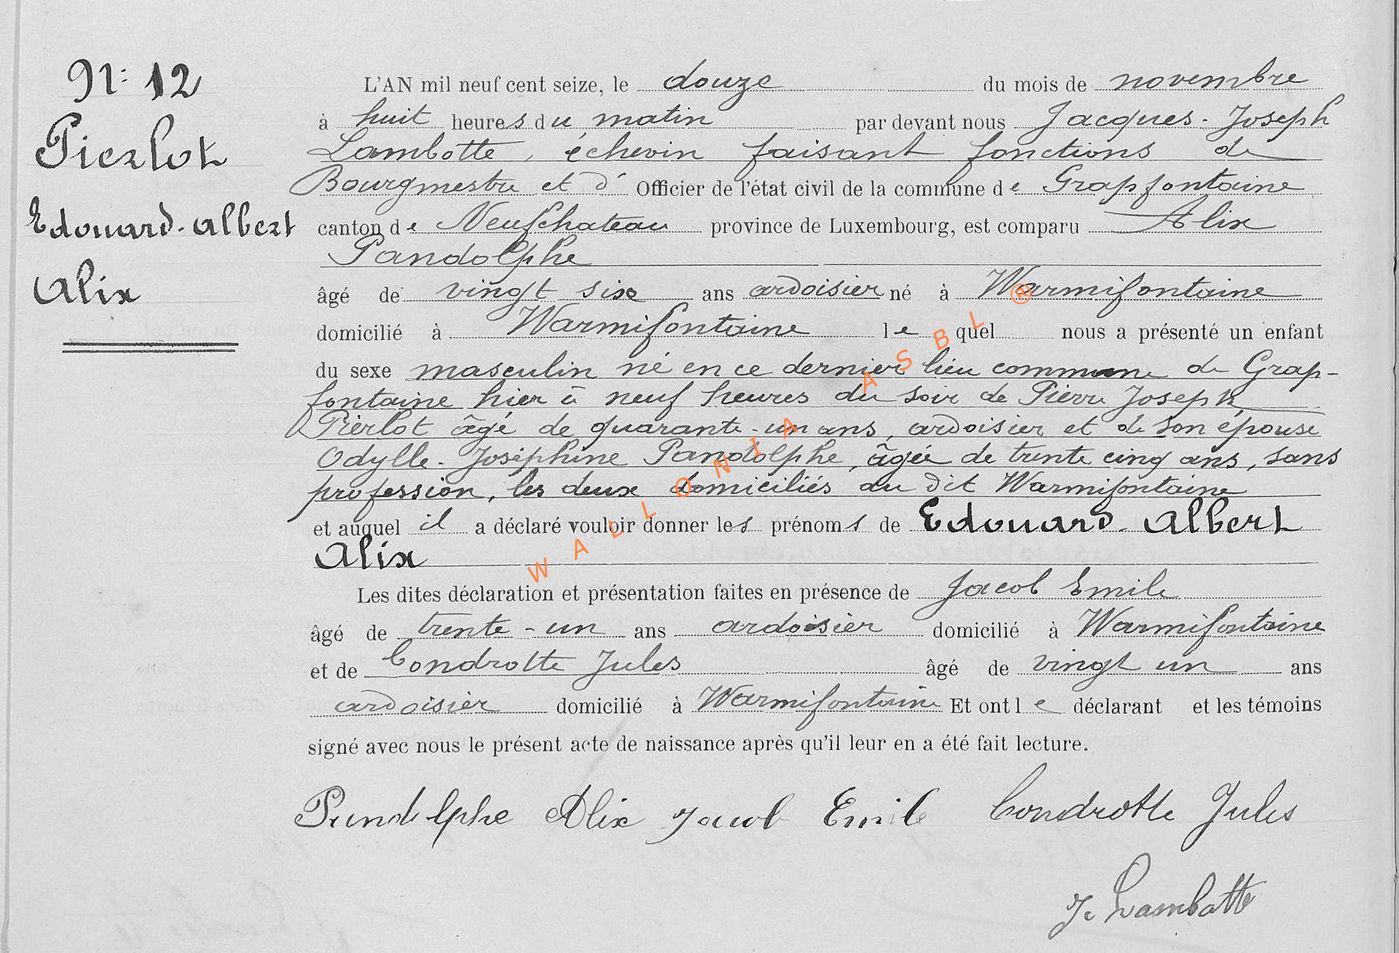 N: 12
Pierlot
Edouard-Albert
Alix
L'AN mil neuf cent seize, le douze du mois de novembre
à huit heures du matin par devant nous Jacques-Joseph
Lambotte, échevin faisant fonctions de
Bourgmestre et d' Officier de l'état civil de la commune de Grapfontaine
canton de Neufchateau province de Luxembourg, est comparu Alix
Pandolphe
âgé de vingt six ans ardoisier né à Warmifontaine
domicilié à Warmifontaine lequel nous a présenté un enfant
du sexe masculin né en ce dernier lieu commune de Grap-
fontaine hier à neuf heures du soir de Pierre Joseph
Pierlot âgé de quarante-un ans, ardoisier et de son épouse
Odylle-Joséphine Pandolphe, âgée de trente cinq ans, sans
profession, les deux domiciliés au dit Warmifontaine
et auquel il a déclaré vouloir donner les prénoms de Edouard-Albert
Alix
Les dites déclaration et présentation faites en présence de Jacob Emile
âgé de trente-un ans ardoisier domicilié à Warmifontaine
et de Condrotte Jules âgé de vingt un ans
ardoisier domicilié à Warmifontaine Et ont le déclarant et les témoins
signé avec nous le présent acte de naissance après qu'il leur en a été fait lecture.
Pandolphe Alix Jacob Emile Condrotte Jules
J. Lambotte
WALLONIA ASBL ®